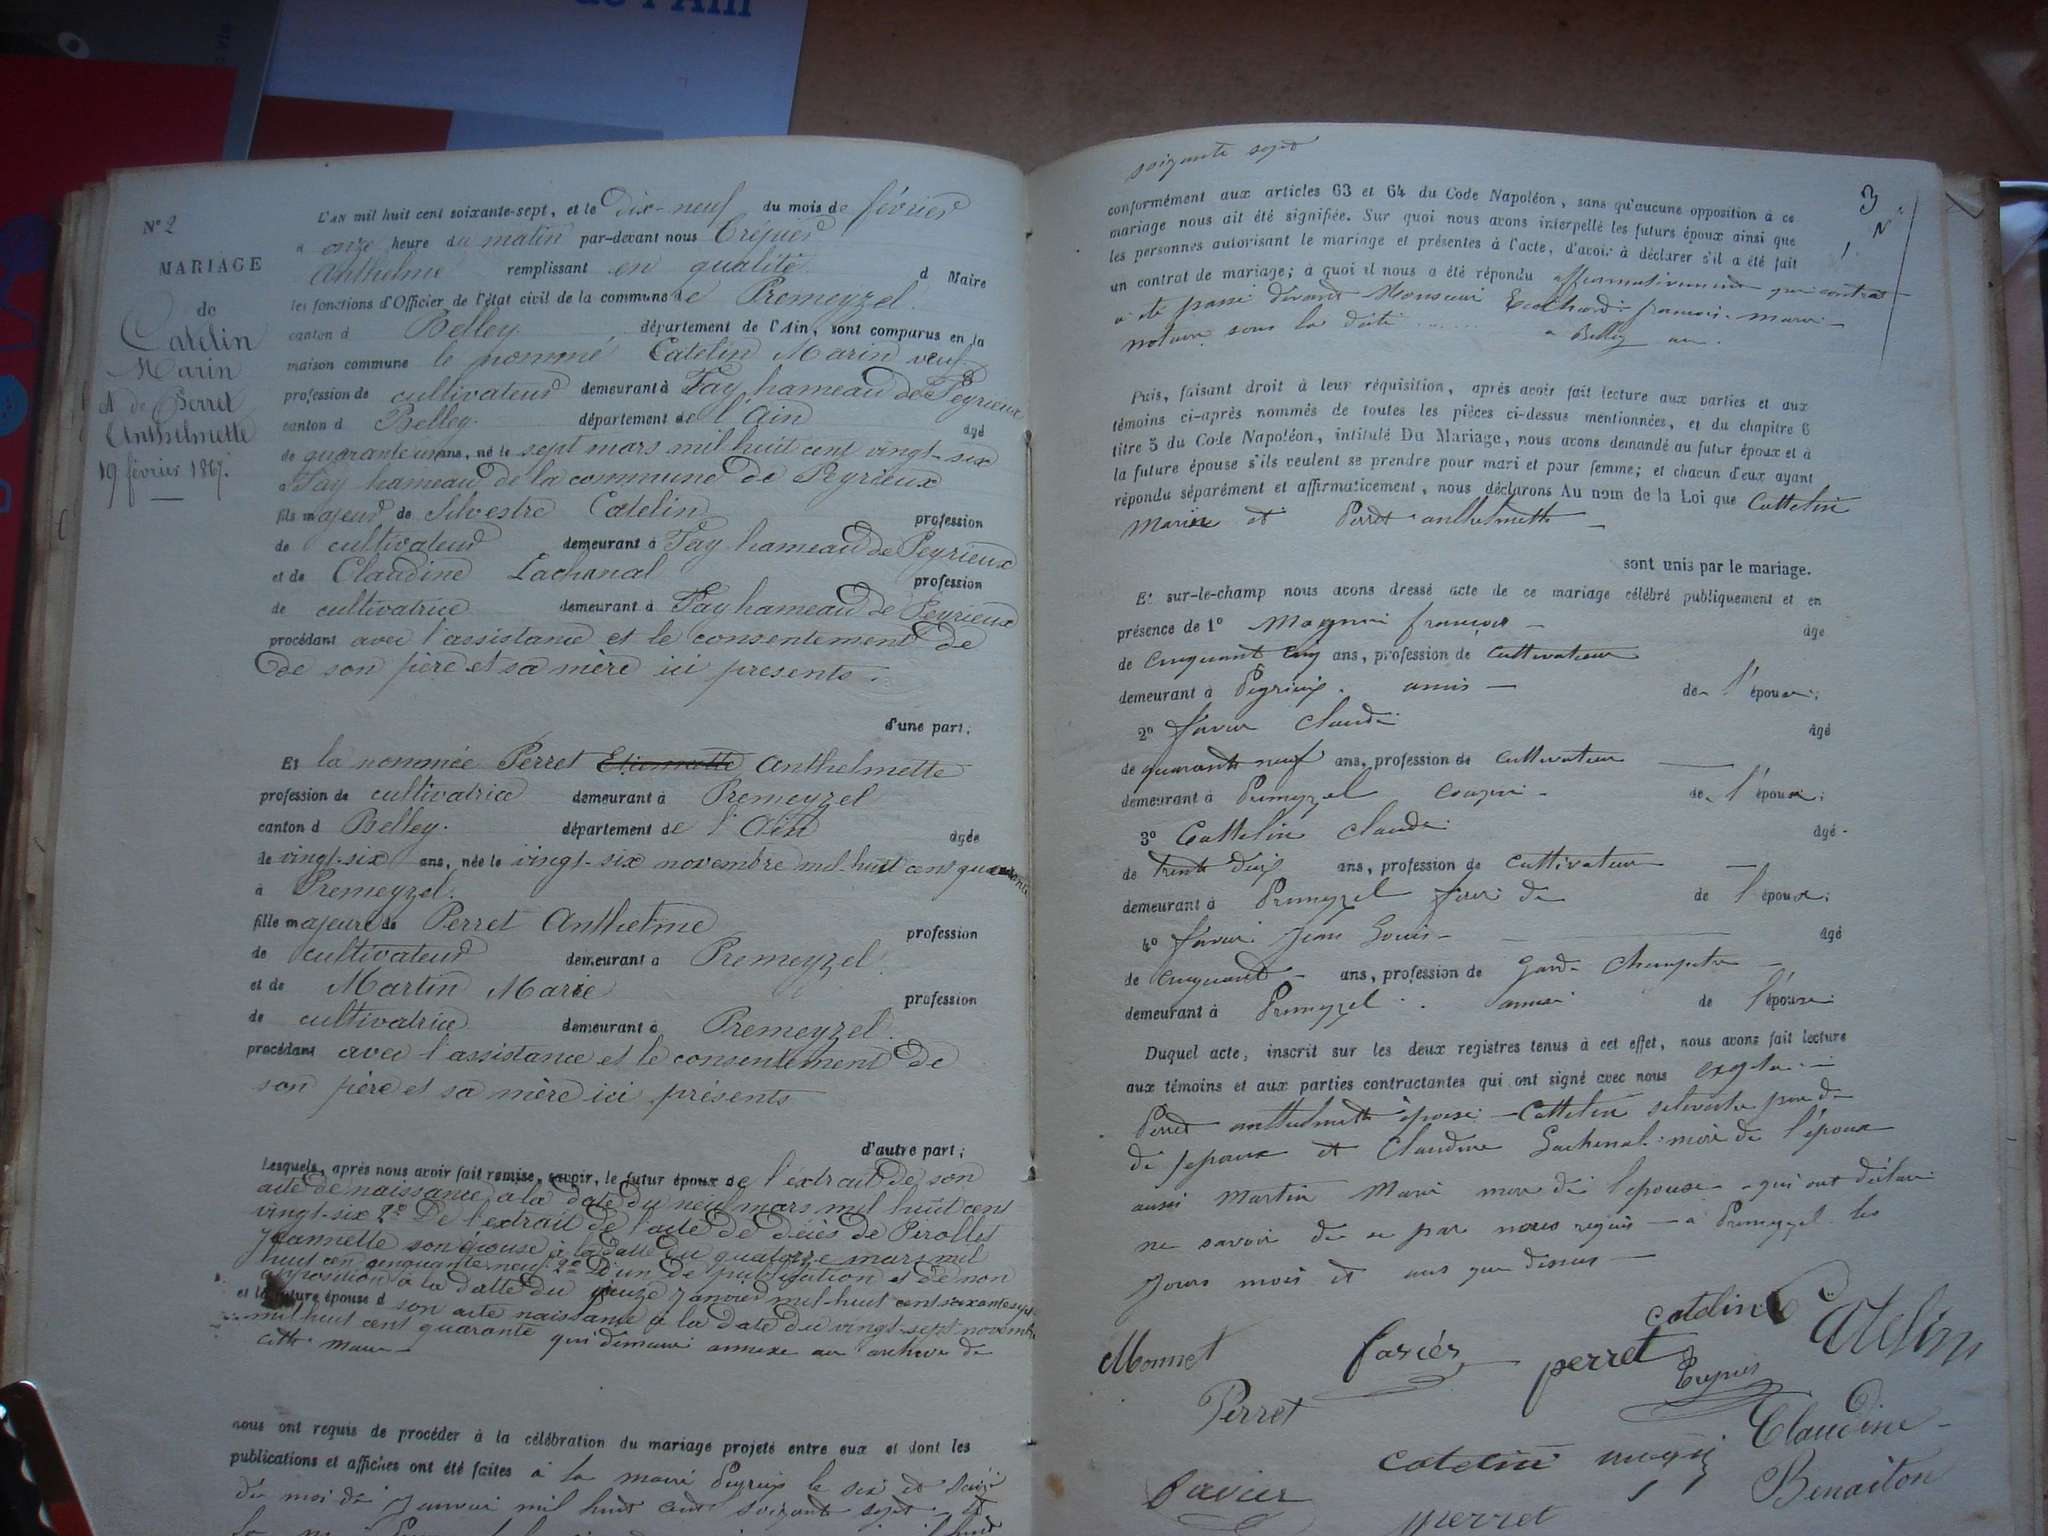 de l'Ain
N° 2
MARIAGE
de
Catelin
Marin
et de Perret
Anthelmette
19 février 1867.
L'AN mil huit cent soixante-sept, et le dix-neuf du mois de février
a onze heure du matin par-devant nous Trepier
Anthelme remplissant en qualité d Maire
les fonctions d'Officier de l'état civil de la commune de Premeyzel
canton d Belley département de l'Ain, sont comparus en la
maison commune le nommé Catelin Marin veuf
profession de cultivateur demeurant à Fay hameau de Peyrieux
canton d Belley. département de l'Ain âgé
de quarante un ans, né le sept mars mil huit cent vingt-six
a Fay hameau de la commune de Peyrieux
fils majeur de Silvestre Catelin profession
de cultivateur demeurant à Fay hameau de Peyrieux
et de Claudine Lachanal profession
de cultivatrice demeurant à Fay hameau de Peyrieux
procédant avec l'assistance et le consentement de
de son père et sa mère ici presents.
d'une part;
Et la nommée Perret Etiennette Anthelmette
profession de cultivatrice demeurant à Premeyzel
canton d Belley. département de l'Ain âgée
de vingt-six ans, née le vingt-six novembre mil huit cent quarante
à Premeyzel.
fille majeure de Perret Anthelme profession
de cultivateur demeurant a Premeyzel
et de Martin Marie profession
de cultivatrice demeurant à Premeyzel.
procédant avec l'assistance et le consentement de
son père et sa mère ici présents
d'autre part;
Lesquels, après nous avoir fait remise, savoir, le futur époux de l'extrait de son
acte de naissance a la date du neuf mars mil huit cent
vingt-six 2° De l'extrait de l'acte de décès de Pirollet
Jeannette son épouse à la datte du quatorze mars mil
huit cen cinquante neuf 3° D'un de publication et de non
opposition à la datte du janvier mil huit cent soixante sept
et la future épouse d son acte naissance a la date du vingt-sept novembre
mil huit cent quarante qui demeure annexe au archive de
cette maire
nous ont requis de procéder à la célébration du mariage projeté entre eux et dont les
publications et affiches ont été faites à la mairi Peyrieux le six et treize
du moi de Janvier mil huit cent soixante sept et
soixante sept
3
conformément aux articles 63 et 64 du Code Napoléon, sans qu'aucune opposition à ce
mariage nous ait été signifiée. Sur quoi nous avons interpellé les futurs époux ainsi que
les personnes autorisant le mariage et présentes à l'acte, d'avoir à déclarer s'il a été fait
un contrat de mariage; à quoi il nous a été répondu affirmativement que contrat
a été passé devant Monsieur françois marie
notaire sous la date a Belley
Puis, faisant droit à leur réquisition, après avoir fait lecture aux parties et aux
témoins ci-après nommés de toutes les pièces ci-dessus mentionnées, et du chapitre 6
titre 5 du Code Napoléon, intitulé Du Mariage, nous avons demandé au futur époux et à
la future épouse s'ils veulent se prendre pour mari et pour femme; et chacun d'eux ayant
répondu séparément et affirmativement, nous déclarons Au nom de la Loi que Cattelin
Marin et Perret anthelmette
sont unis par le mariage.
Et sur-le-champ nous avons dressé acte de ce mariage célébré publiquement et en
présence de 1° françois âgé
de cinquant cinq ans, profession de cultivateur
demeurant à Peyrieux. amis de l'époux;
2° favier claude âgé
de quarante neuf ans, profession de cultivateur
demeurant à Premeyzel cousin de l'époux;
3° Cattelin claude âgé
de trente deux ans, profession de cultivateur
demeurant à Premeyzel de l'époux;
4° favier Jean Louis âgé
de cinquante ans, profession de Garde Champetre
demeurant à Premeyzel. amie de l'épouse
Duquel acte, inscrit sur les deux registres tenus à cet effet, nous avons fait lecture
aux témoins et aux parties contractantes qui ont signé avec nous excepter
Perret anthelmette épouse Cattelin silvestre père de
de lepoux et Claudine Lachenal mère de l'époux
aussi Martin Marie mere de l'epouse qui ont déclaré
ne savoir de ce par nous requis a Premeyzel les
Jours mois et ans que dessus
Monnet favier perret catelin Catelin
Trepier
Perret catelin Claudine
favier perret Benaiton